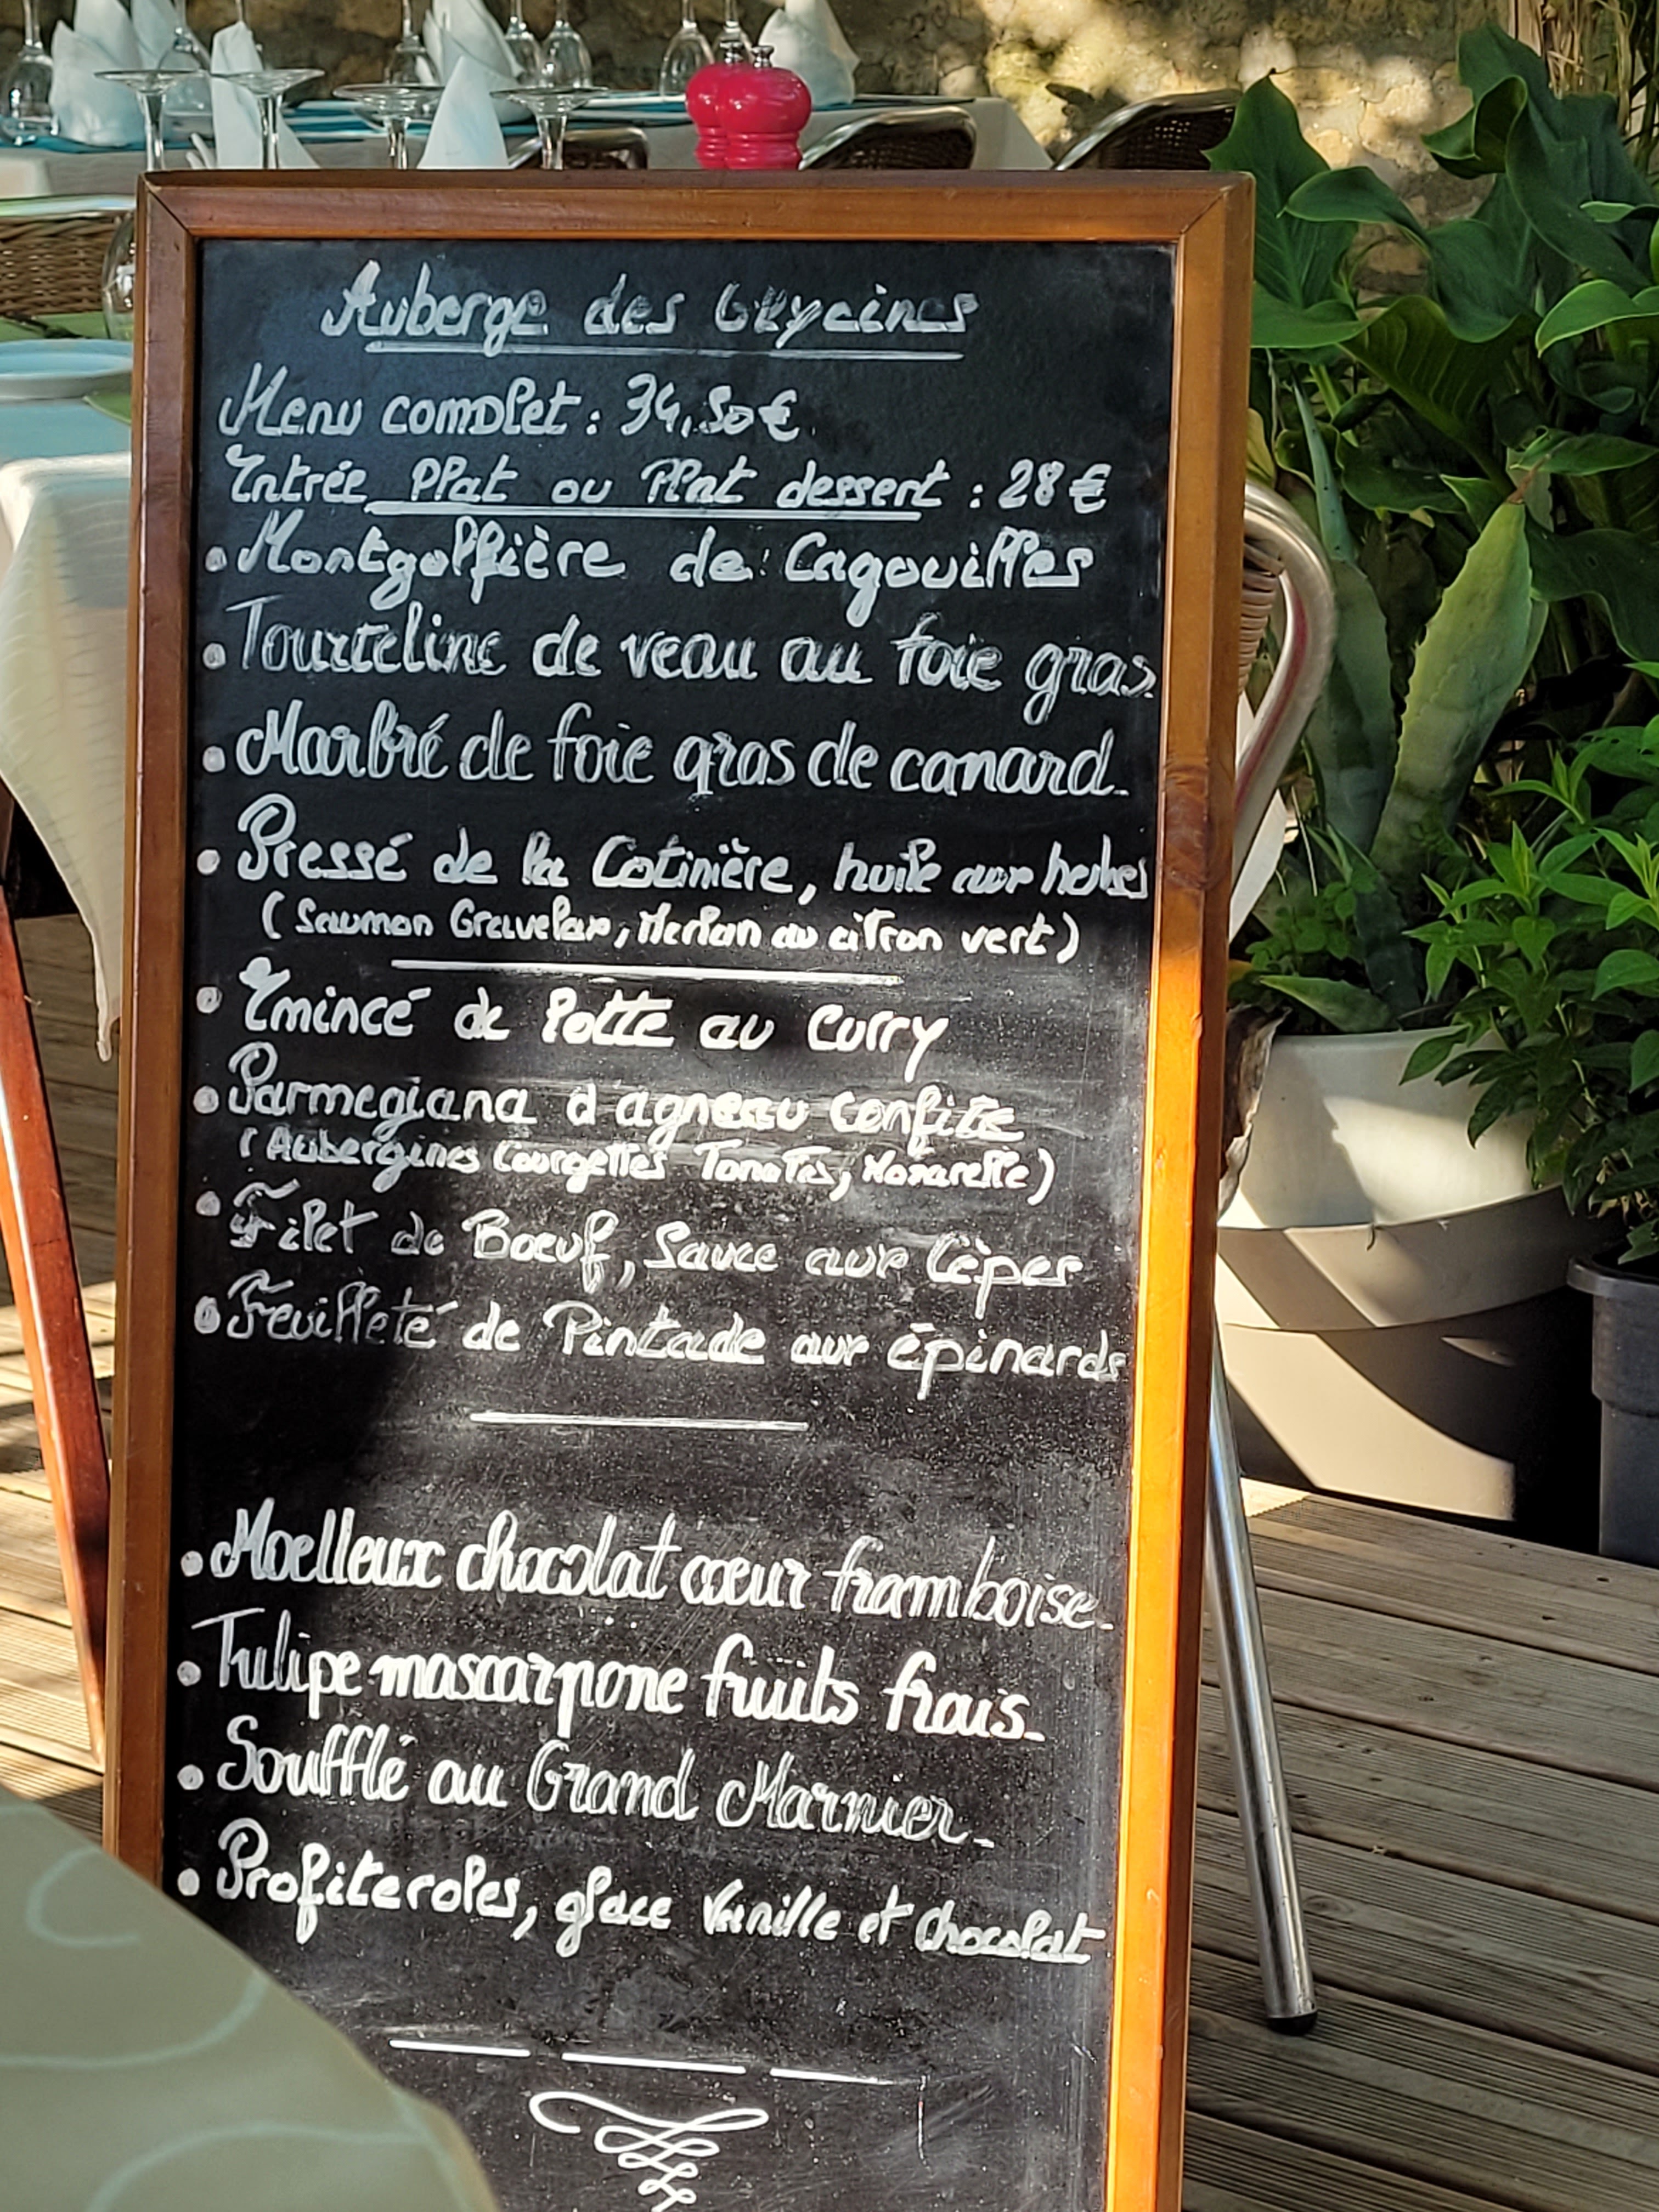 Auberge des Glycines
Menu complet : 34,50€
Entrée Plat ou Plat dessert : 28€
• Montgolfière de Cagouilles
• Tourteline de veau au foie gras.
• Marbré de foie gras de canard.
• Pressé de la Cotinière, huile aux herbes
(Saumon Gravelax, Merlan au citron vert)
• Emincé de Lotte au Curry
• Parmegiana d'agneau confite
(Aubergines Courgettes Tomates, Mozarelle)
• Filet de Boeuf, Sauce aux Cèpes
• Feuilleté de Pintade aux épinards
• Moelleux chocolat cœur framboise.
• Tulipe mascarpone fruits frais.
• Soufflé au Grand Marnier.
• Profiteroles, glace Vanille et chocolat